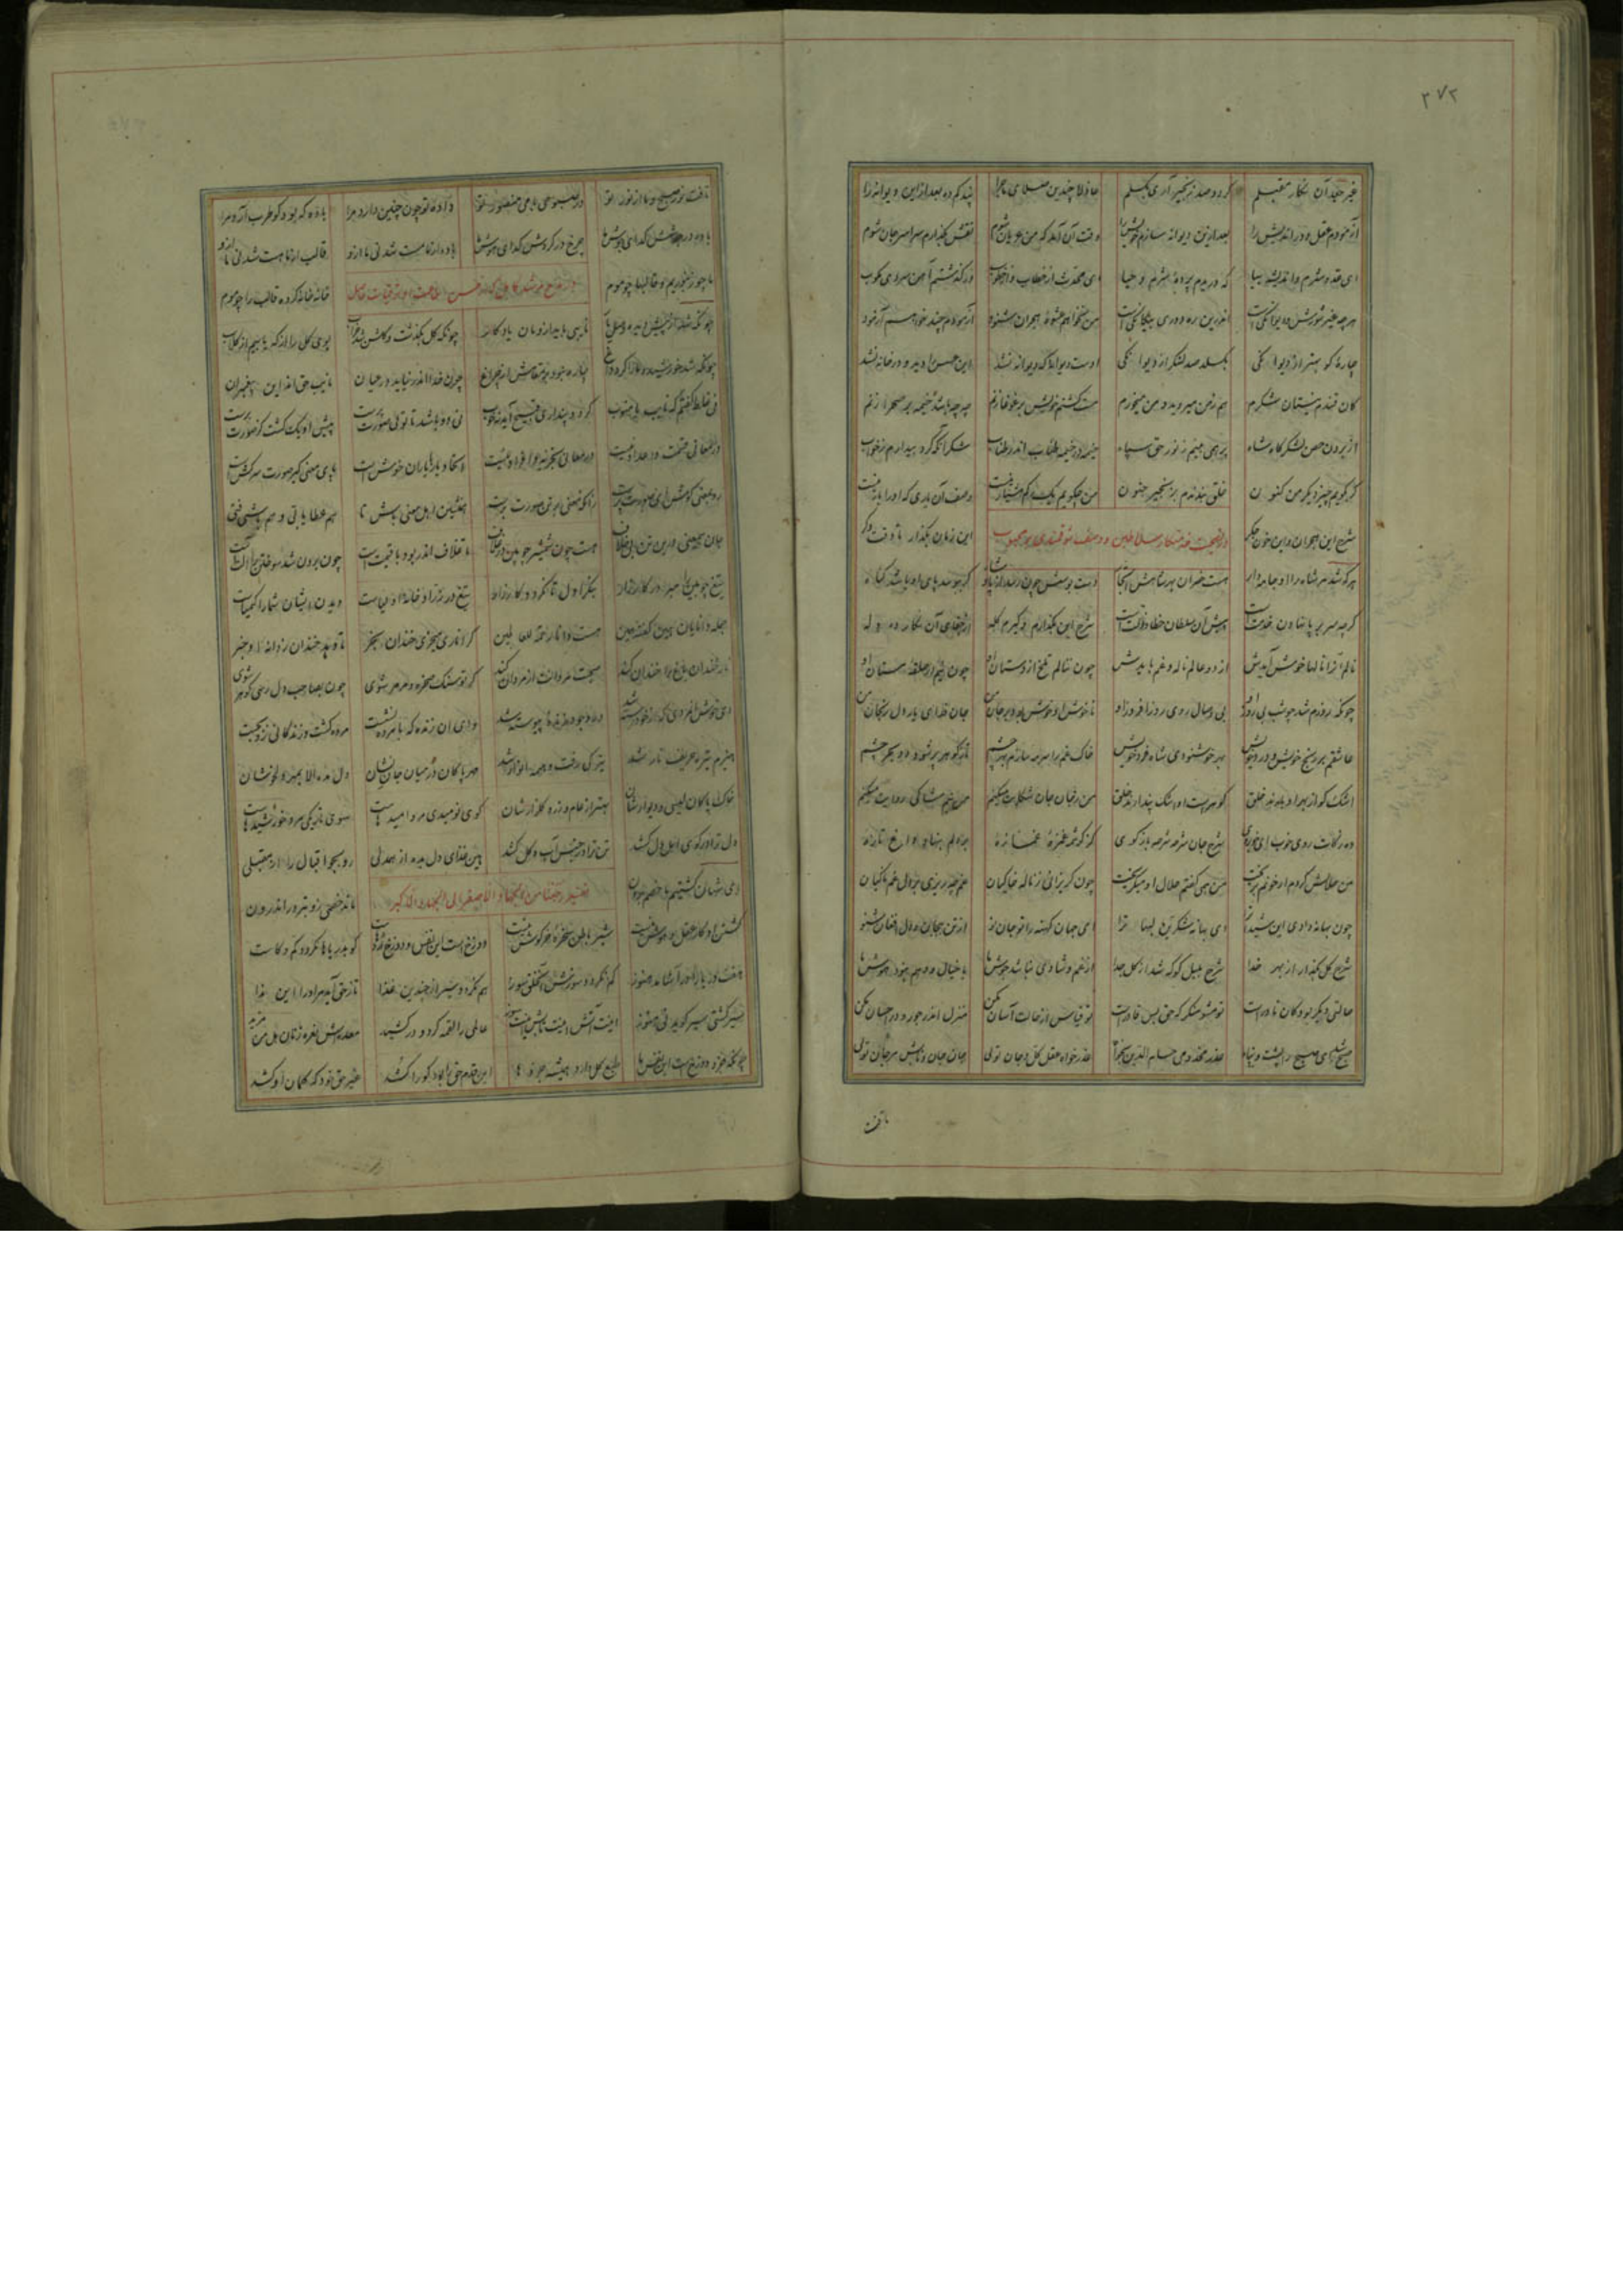 ۳۷۲
غیر جعد آن نگار مقبلم گر دو صد زنجیر آری بگسلم عاذلا چندین صلای ماجرا پند کم ده بعد ازین دیوانه را
آزمودم عقل دور اندیش را بعد ازین دیوانه سازم خویش را وقت آن آمد که من عریان شوم نقش بگذارم سراسر جان شوم
ای عدو شرم و اندیشه بیا که دریدم پرده شرم و حیا ای محدث از خطاب و از خطوب در گذشتم آهن سردی مکوب
هر چه غیر شورش و دیوانگی است اندرین ره دوری و بیگانگی است من نخواهم عشوه هجران شنود آزمودم چند خواهم آزمود
چاره کو بهتر از دیوانگی بگسلد صد لنگر از دیوانگی اوست دیوانه که دیوانه نشد این عسس را دید و در خانه نشد
کان قندم نیستان شکرم هم ز من میروید و من میخورم مست گشتم خویش بر غوغا زنم چه چه باشد خیمه بر صحرا زنم
از برون حصن لشکرگاه شاه پر همی بینم ز نور حق سپاه خیمه در خیمه طناب اندر طناب شکر آنکه کرد بیدارم ز خواب
گر بگویم چیز دیگر من کنون خلق بندندم بزنجیر جنون من چگویم یک رگم هشیار نیست وصف آن یاری که او را یار نیست
شرح این هجران و این خون جگر این زمان بگذار تا وقت دگر
هر که شد مر شاه را او جامه دار هست خسران بهر شاهش اتجار دست بوسش چون رسید از پادشاه گر بوسد پای او باشد گناه
گرچه سر بر پا نهادن خدمت است پیش آن سلطان خطا و زلت است شرح این بگذارم و گیرم گله از جفای آن نگار ده دله
نالم ایرا نالها خوش آیدش از دو عالم ناله و غم بایدش چون ننالم تلخ از دستان او چون نیم در حلقه مستان او
چونکه روزم شد چو شب بی روز او بی وصال روی روز افروز او ناخوش او خوش بود بر جان من جان فدای یار دل رنجان من
عاشقم بر رنج خویش و درد خویش بهر خوشنودی شاه فرد خویش خاک غم را سرمه سازم بهر چشم تا ز گوهر پر شود دو بحر چشم
اشک کو از بهر او بارند خلق گوهرست و اشک پندارند خلق من ز جان جان شکایت میکنم من نیم شاکی روایت میکنم
ده زکات روی خوب ای خوبروی شرح جان شرحه شرحه بازگوی کز کرشمه غمزه غمازه بر دلم بنهاد او داغ تازه
من حلالش کردم ار خونم بریخت من همی گفتم حلال او میگریخت چون گریزانی ز ناله خاکیان غم چه ریزی بر دل غمناکیان
چون بهانه دادی این شیدات را ای بهانه شکرین لبهات را ای جهان کهنه را تو جان نو از تن بیجان و دل افغان شنو
شرح گل بگذار از بهر خدا شرح بلبل گو که شد از گل جدا از غم و شادی نباشد جوش ما با خیال و وهم نبود هوش ما
حالتی دیگر بود کان نادرست تو مشو منکر که حق بس قادرست تو قیاس از حالت انسان مکن منزل اندر جور و در احسان مکن
صبح شد ای صبح را پشت و پناه عذر مخدومی حسام الدین بخواه عذرخواه عقل کل و جان توئی جان جان و تابش مرجان توئی
تافت
تافت نور صبح و ما از نور تو در صبوحی با می منصور تو داده تو چون چنین دارد مرا باده که بود کو طرب آرد مرا
باده در جوشش گدای جوش ما چرخ در گردش گدای هوش ما باده از ما مست شد نی ما ازو قالب از ما هست شد نی ما ازو
ما چو زنبوریم و قالبها چو موم خانه خانه کرده قالب را چو موم
چونکه شد از پیش دیده وصل یار نایبی باید ازو مان یادگار چونکه گل بگذشت و گلشن شد خراب بوی گل را از که یابیم از گلاب
چونکه شد خورشید و ما را کرد داغ چاره نبود بر مقامش از چراغ چون خدا اندر نیاید در عیان نایب حق اند این پیغمبران
نی غلط گفتم که نایب یا منوب گر دو پنداری قبیح آید نه خوب نی دو باشد تا توئی صورت پرست پیش او یک گشت کز صورت برست
در معانی قسمت و اعداد نیست در معانی تجزیه و افراد نیست اتحاد یار با یاران خوش است پای معنی گیر صورت سرکش است
رو بمعنی کوش ای صورت پرست زانکه معنی بر تن صورت پرست همنشین اهل معنی باش تا هم عطا یابی و هم باشی فتی
جان بی معنی درین تن بی خلاف هست چون شمشیر چوبین در غلاف تا غلاف اندر بود با قیمت است چون برون شد سوختن را آلت است
تیغ چوبین را مبر در کارزار بنگر اول تا نگردد کار زار تیغ در زرادخانه اولیاست دیدن ایشان شما را کیمیاست
جمله دانایان همین گفته همین هست دانا رحمة للعالمین گر اناری میخری خندان بخر تا دهد خندان ز دانه او خبر
نار خندان باغ را خندان کند صحبت مردانت از مردان کند گر تو سنگ صخره و مرمر شوی چون بصاحب دل رسی گوهر شوی
ای خوش آن مردی که از خود رسته شد در وجود زنده پیوسته شد وای آن زنده که با مرده نشست مرده گشت و زندگانی زو بجست
هیزم تیره حریف نار شد تیرگی رفت و همه انوار شد مهر پاکان در میان جان نشان دل مده الا بمهر دلخوشان
خاک پاکان لیسی و دیوارشان بهتر از عام و زر و گلزارشان کوی نومیدی مرو امیدهاست سوی تاریکی مرو خورشیدهاست
دل ترا در کوی اهل دل کشد تن ترا در حبس آب و گل کشد هین غذای دل بده از همدلی رو بجو اقبال را از مقبلی
ای شهان کشتیم ما خصم برون تفسیر رجعنا من الجهاد الاصغر الی الجهاد الاکبر ماند خصمی زو بتر در اندرون
کشتن او کار عقل و هوش نیست شیر باطن سخره خرگوش نیست دوزخ است این نفس و دوزخ اژدهاست کو بدریاها نگردد کم و کاست
هفت دریا را در آشامد هنوز کم نگردد سوزش آن خلق سوز هم نگردد سیر از چندین غذا تا ز حق آید مر او را این ندا
سیر گشتی سیر گوید نی هنوز اینت آتش اینت تابش اینت سوز عالمی را لقمه کرد و در کشید معده اش نعره زنان هل من مزید
چونکه جزو دوزخ است این نفس ما طبع کل دارد همیشه جزوها این قدم حق را بود کو را کشد غیر حق خود که کمان او کشد